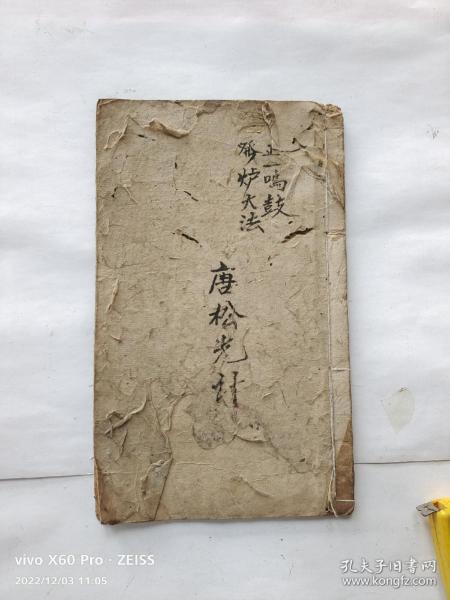 正一鸣鼓
發炉大法
唐松光計
vivo X60 Pro · ZEISS
2022/12/03 11:05
孔夫子旧书网
www.kongfz.com